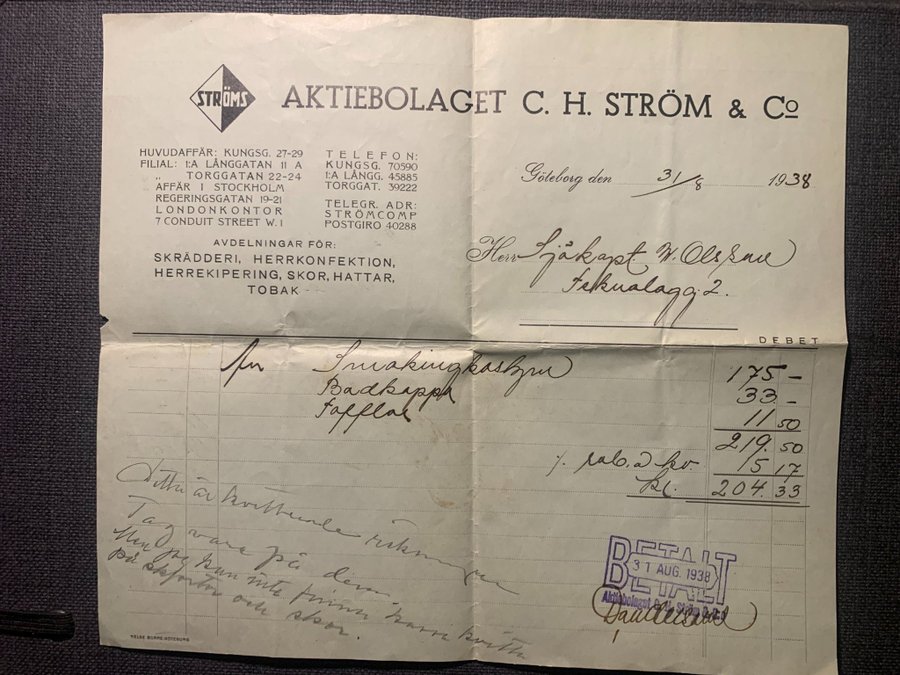 STRÖMS
AKTIEBOLAGET C. H. STRÖM & Co
HUVUDAFFÄR: KUNGSG. 27-29
FILIAL: 1:A LÅNGGATAN 11 A
„ TORGGATAN 22-24
AFFÄR I STOCKHOLM
REGERINGSGATAN 19-21
LONDONKONTOR
7 CONDUIT STREET W. 1
TELEFON:
KUNGSG. 70590
1:A LÅNGG. 45885
TORGGAT. 39222
TELEGR. ADR:
STRÖMCOMP
POSTGIRO 40288
AVDELNINGAR FÖR:
SKRÄDDERI, HERRKONFEKTION,
HERREKIPERING, SKOR, HATTAR,
TOBAK
Göteborg den 31/8 1938
Herr Sjökapt W. Olsson
2.
DEBET
Smokingkostym 175 –
Badkappa 33 –
Tofflor 11 50
219. 50
% rab. 15 17
Kr. 204. 33
Detta är kvitterade räkningen
Tag vara på dem.
Men jag kan inte finna kvitto
på skjortor och skor.
BETALT
31 AUG. 1938
Aktiebolaget C. H. Ström & Co